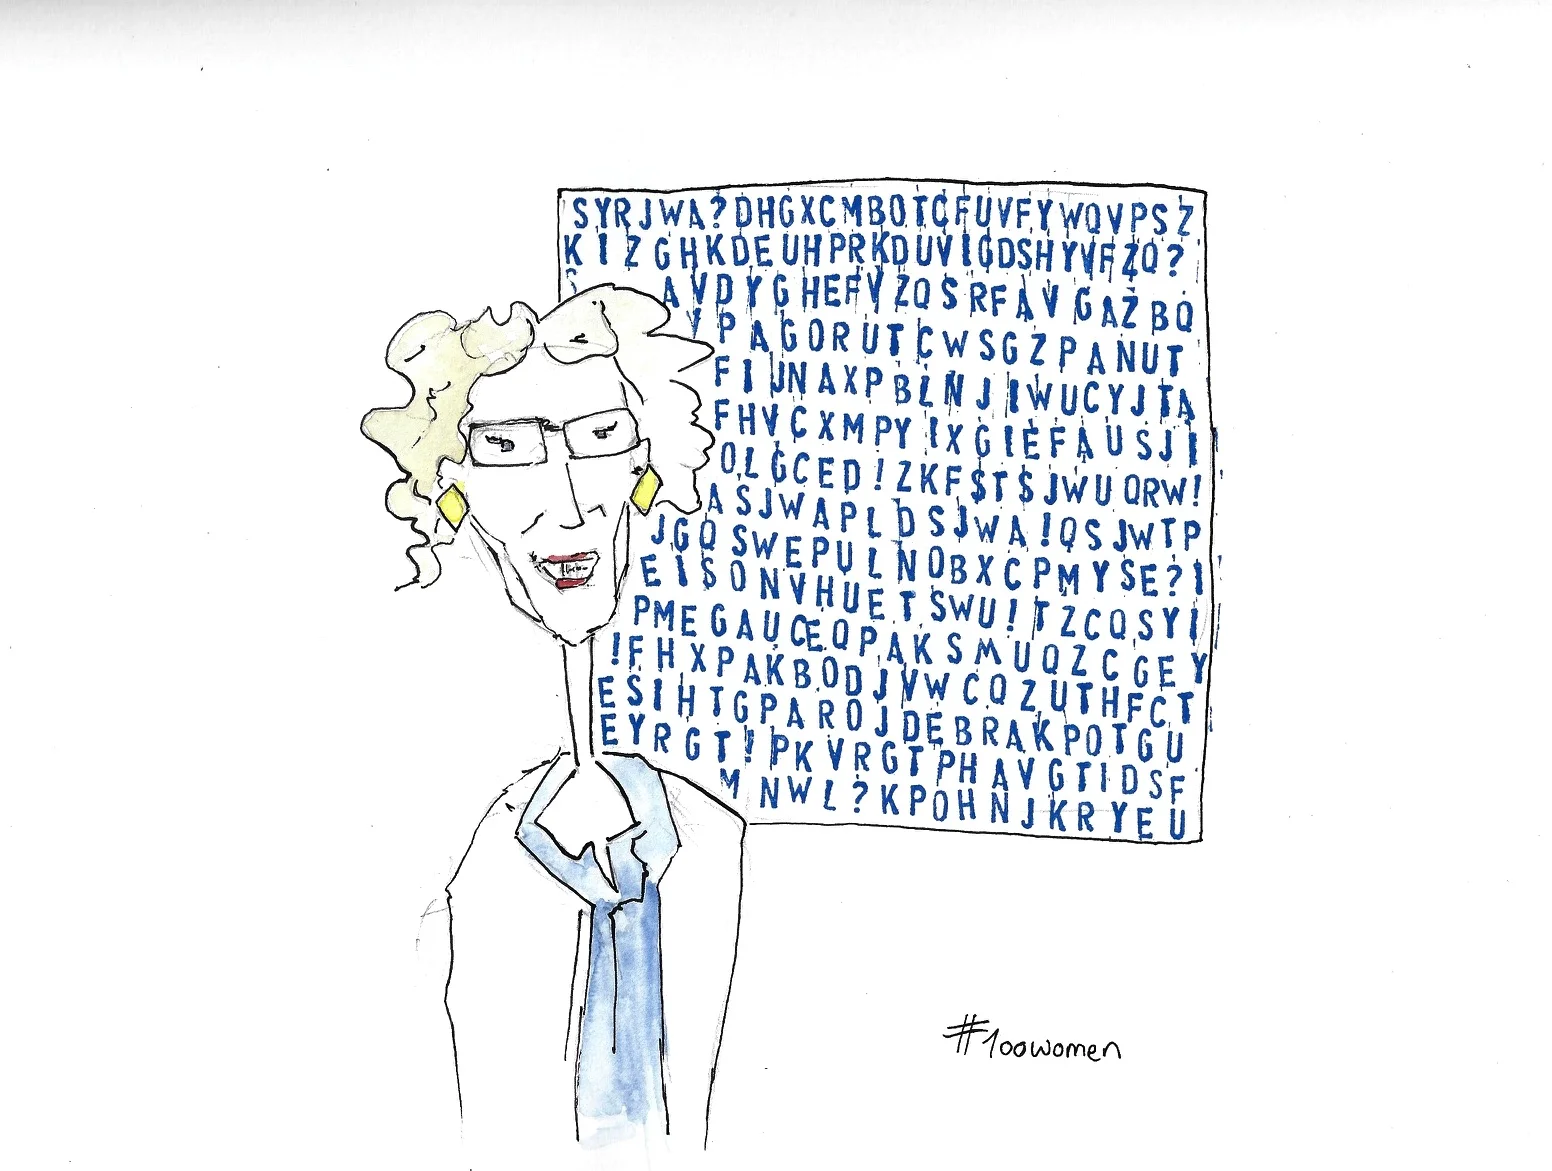 SYRJWA?DHGXCMBOTCFUVFYWQVPSZ
KIZGHKDEUHPRKDUVIGDSHYVFZQ?
S AVDYGHEFVZQSRFAVGAZBQ
VPAGORUTCWSGZPANUT
FIJNAXPBLNJIWUCYJTA
FHVCXMPYIXGIEFAUSJI
OLGCED!ZKFSTSJWUQRW!
ASJWAPLDSJWA!QSJWTP
JGQSWEPULNOBXCPMYSE?I
EISONVHUETSWU!TZCQSYI
PMEGAUCEQPAKSMUQZCGEY
!FHXPAKBODJVWCQZUTHFCT
ESIHTGPAROJDEBRAKPOTGU
EYRGT!PKVRGTPHAVGTIDSF
MNWL?KPOHNJKRYEU
#100women